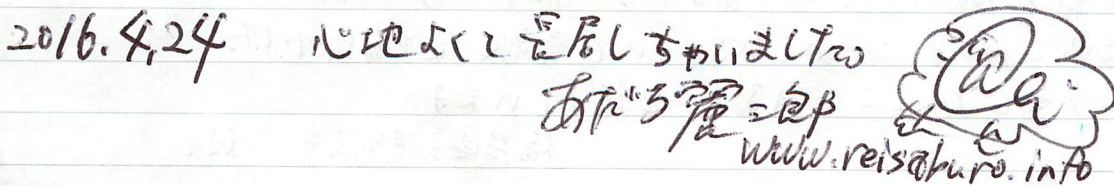 2016.4.24 心地よくて長居しちゃいました。
あだち麗三郎
www.reisaburo.info